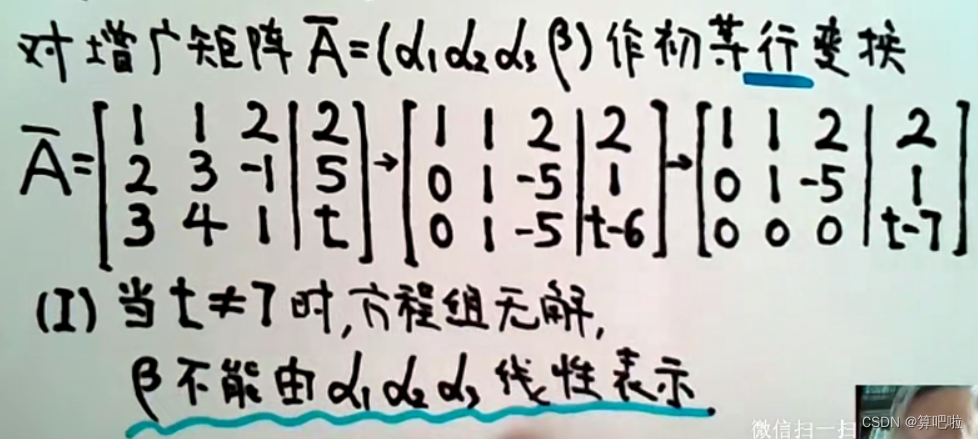 对增广矩阵 A̅=(α₁α₂α₃β)作初等行变换
A̅=[1 1 2 | 2] → [1 1 2 | 2] → [1 1 2 | 2]
[2 3 -1 | 5] [0 1 -5 | 1] [0 1 -5 | 1]
[3 4 1 | t] [0 1 -5 | t-6] [0 0 0 | t-7]
(I) 当 t≠7 时,方程组无解,
β不能由α₁α₂α₃线性表示.
微信扫一扫
CSDN @算吧啦